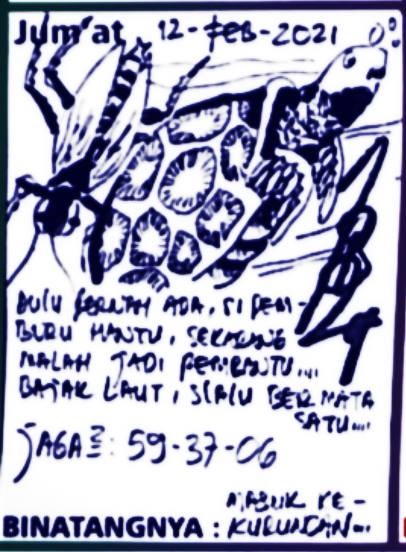 Jum'at, 12-FEB-2021
DULU PERNAH ADA, SI PEM-
BURU HANTU, SEKARANG
MALAH JADI PEMBANTU...
BAJAK LAUT, SLALU BERMATA
SATU...
JAGA2: 59-37-06
MABUK KE-
BINATANGNYA : KURUNGAN...